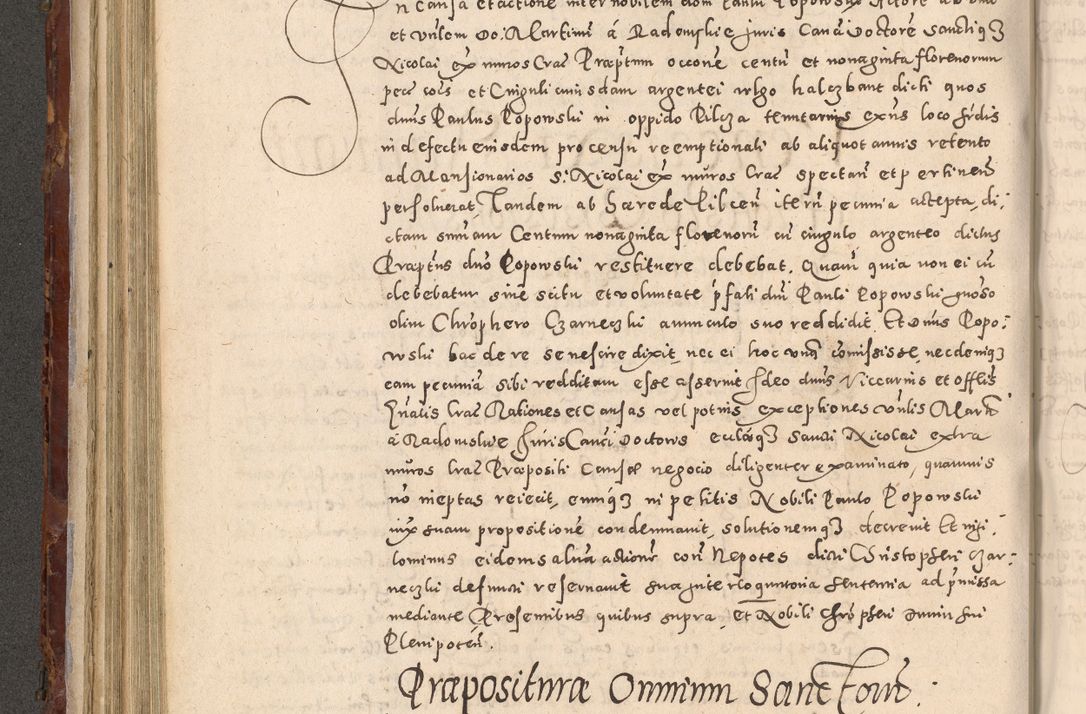 In Causa et actione inter nobilem dom Paulū Popowsky Actorē ab una
et Vnlem Do: Martinū á Radomskie Juris Canci Doctorē Sanctiqȝ
Nicolai ex muros Crac Præptum occone centū et nonaginta florenorum
pec cois et Cinguli cuiusdam argentei wlgo halczbant dicti quos
dnus Paulus Popowski in oppido Pilcza tenutarius exns loco fidis
in defectu eiusdem pro censu reemptionali ab aliquot annis retento
ad Mansionarios S. Nicolai ex muros Crac spectañ et pertineñ
persoluerat, Tandem ab Hærede Pilceñ iterū pecunia accepta, di:
ctam summam Centum nonaginta florenorū cū cingulo argenteo dictus
Præptus dno Popowski restituere debebat. Quam quia non ei cū
debebatur sine scitu et voluntate pfati dni Pauli Popowski gnoso
olim Chrophero Czarneczki auunculo suo reddidit. Et Dnus Popo:
wski hac de re se nescire dixit, nec ei hoc vnq̃ comisisse, nec deniqȝ
eam pecuniā sibi redditam esse asseruit Ideo dnus Viccarius et offlis
Gnalis Crac Rationes et Causas vel potius exceptiones Vnlis Martī
á Radomskie Juris Canci Doctoris ecclæqȝ Sancti Nicolai extra
muros Crac Præpositi Causæ negocio diligenter examinato, quamuis
nō ineptas reiecit, eumqȝ in petitis Nobili Paulo Popowski
iux suam propositionē condemnauit, solutionemqȝ decreuit Et nihi:
lominus eidem saluā actionē con Nepotes dicti Christopheri Czar:
neczki defuncti reseruauit sua interloquutoria sententia ad pmissa
mediante Præsentibus quibus supra, et Nobili Chrophori Dunin sui
Plenipoteñ.
Præpositura Omnium Sanctorū.